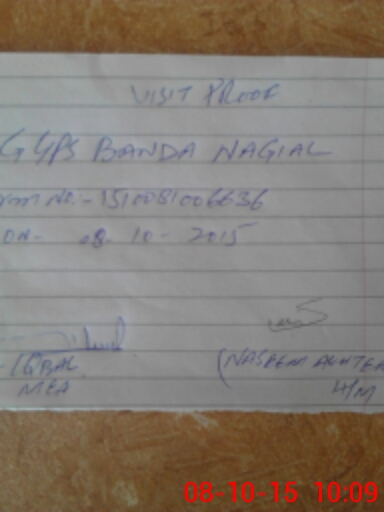 VISIT PROOF
GGPS BANDA NAGIAL
No:- 1510081006636
ON- 08. 10- 2015
IQBAL (NASEEM AKHTER
MEA H/M
08-10-15 10:09